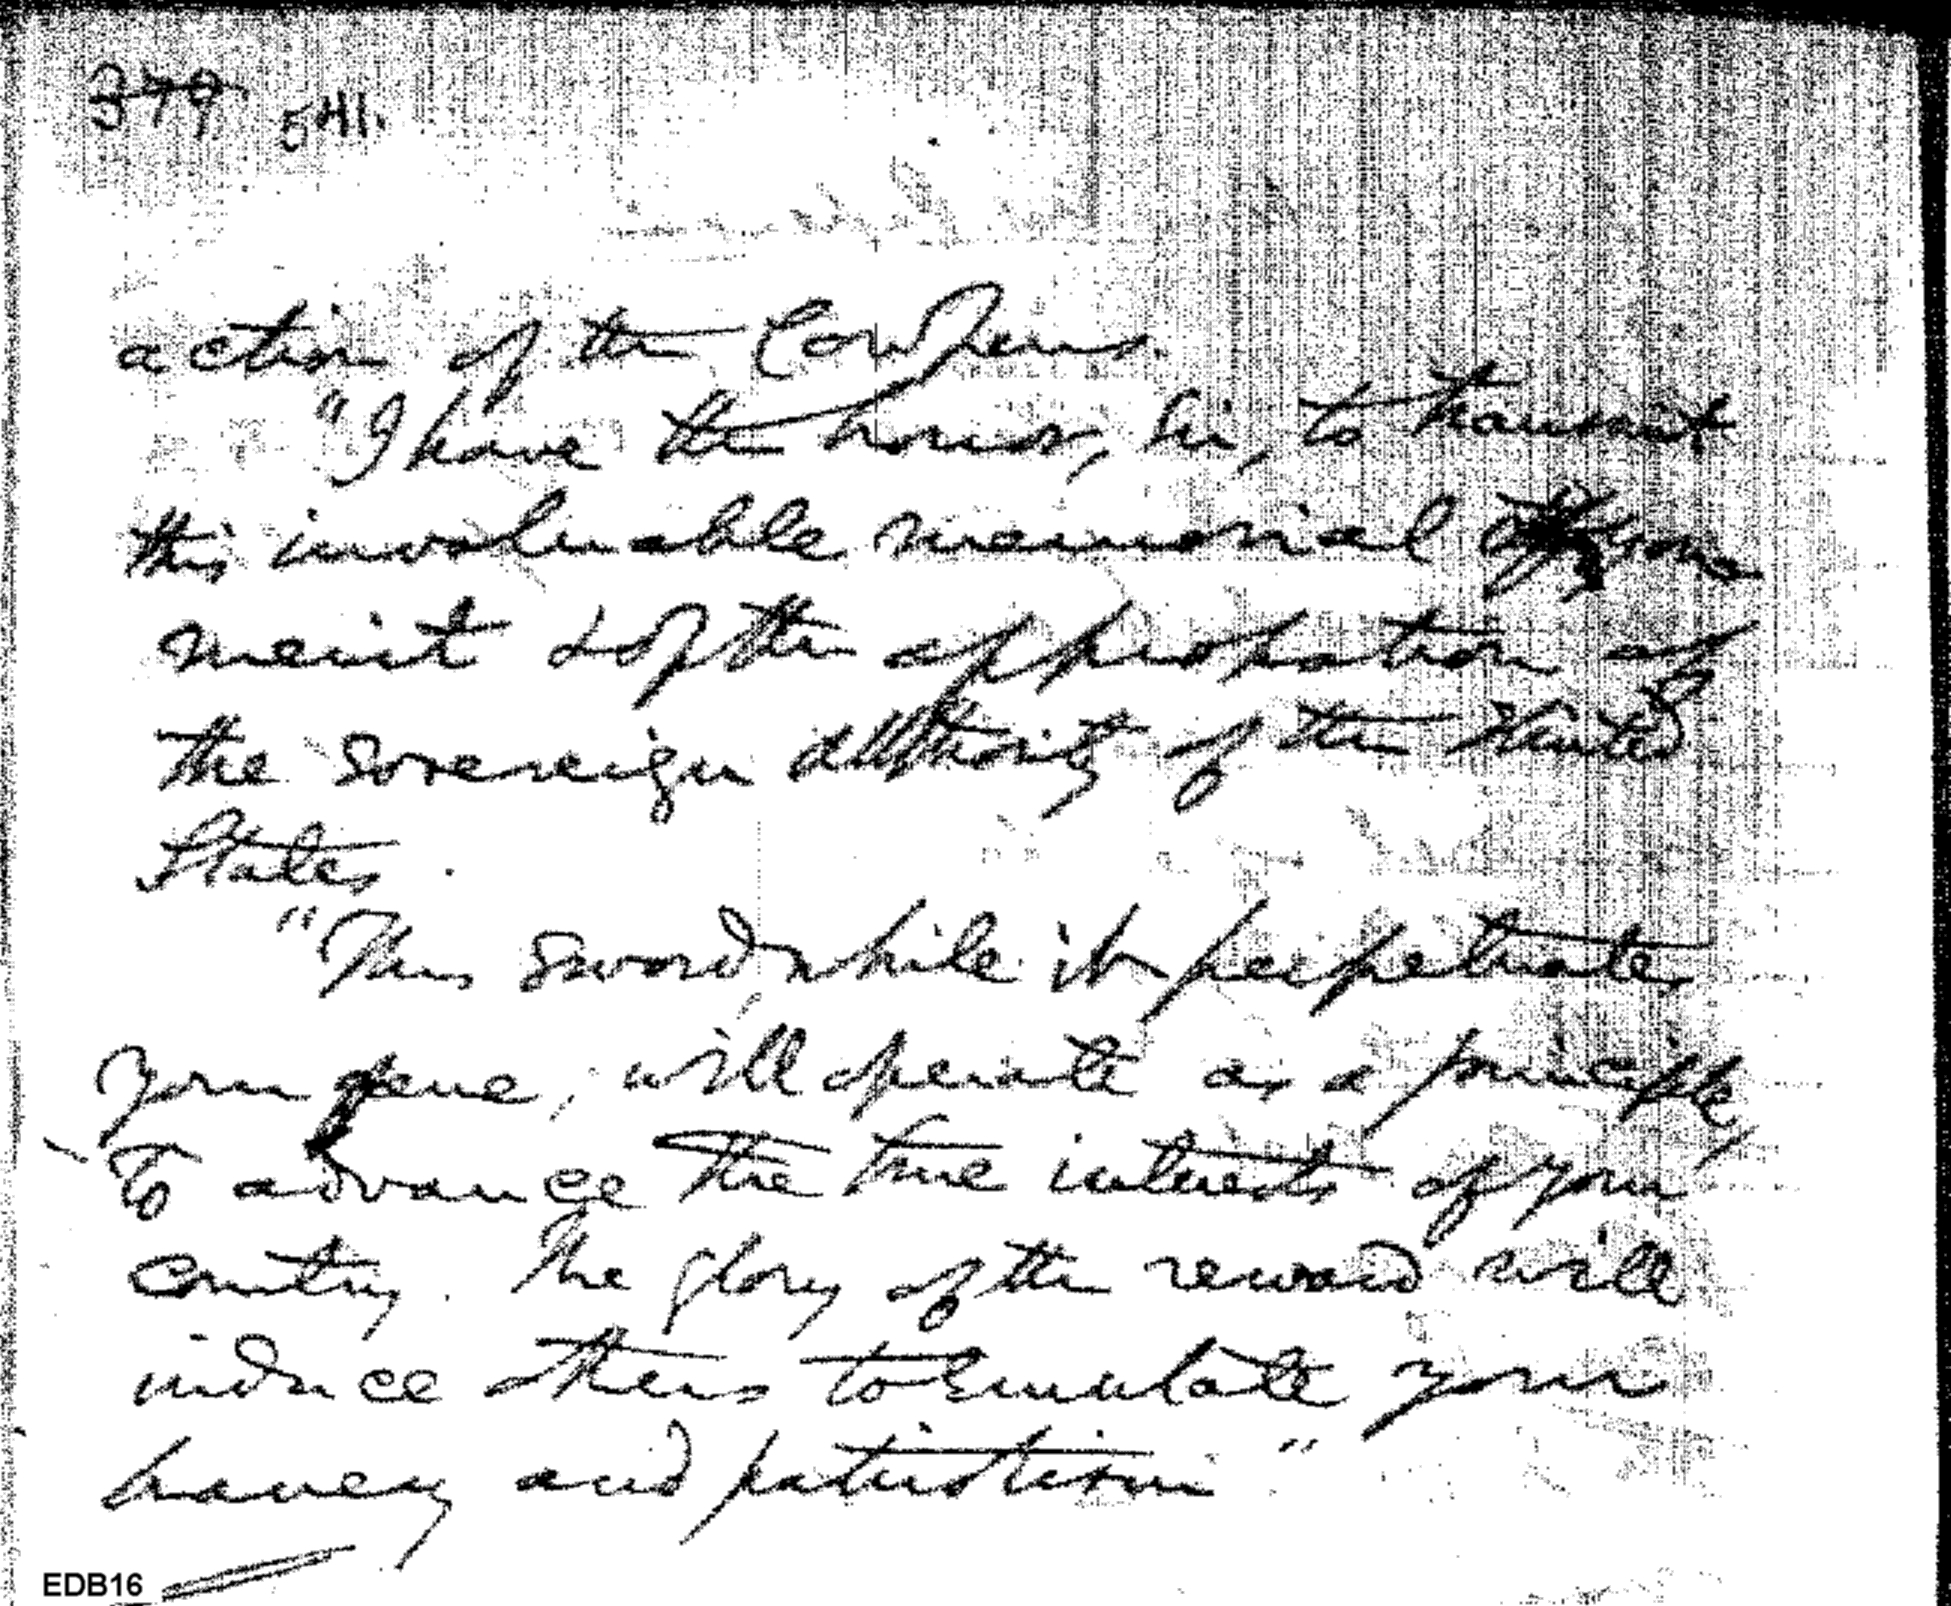 379 541.
action of the Cowpens.
"I have the honor, Sir, to transmit
this invaluable memorial of your
merit & of the approbation of
the sovereign authority of the United
States.
"This sword, while it perpetuates
your , will operate as a principle,
To advance the true interests of your
country. The glory of the reward will
induce others to Emulate your
bravery and patriotism"
EDB16